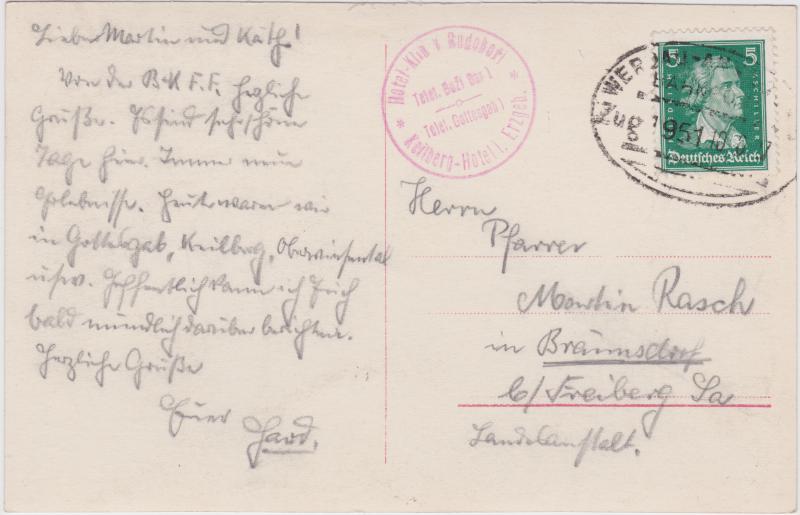 Lieber Martin und Käth!
Von der B.K.F.F. herzliche
Grüße. Es sind sehr schöne
Tage hier. Immer neue
Erlebnisse. Heute waren wir
in Gottesgab, Keilberg, Oberwiesental
usw. Hoffentlich kann ich Euch
bald mündlich darüber berichten.
Herzliche Grüße
Euer
Hotel
Telef.
Telef. Gottesgab 1
Keilberg-Hotel i. Erzgeb.
5 5
Zug 1951
Deutsches Reich
Herrn
Pfarrer
Martin Rasch
in Bräunsdorf
b/Freiberg Sa
Landesanstalt.